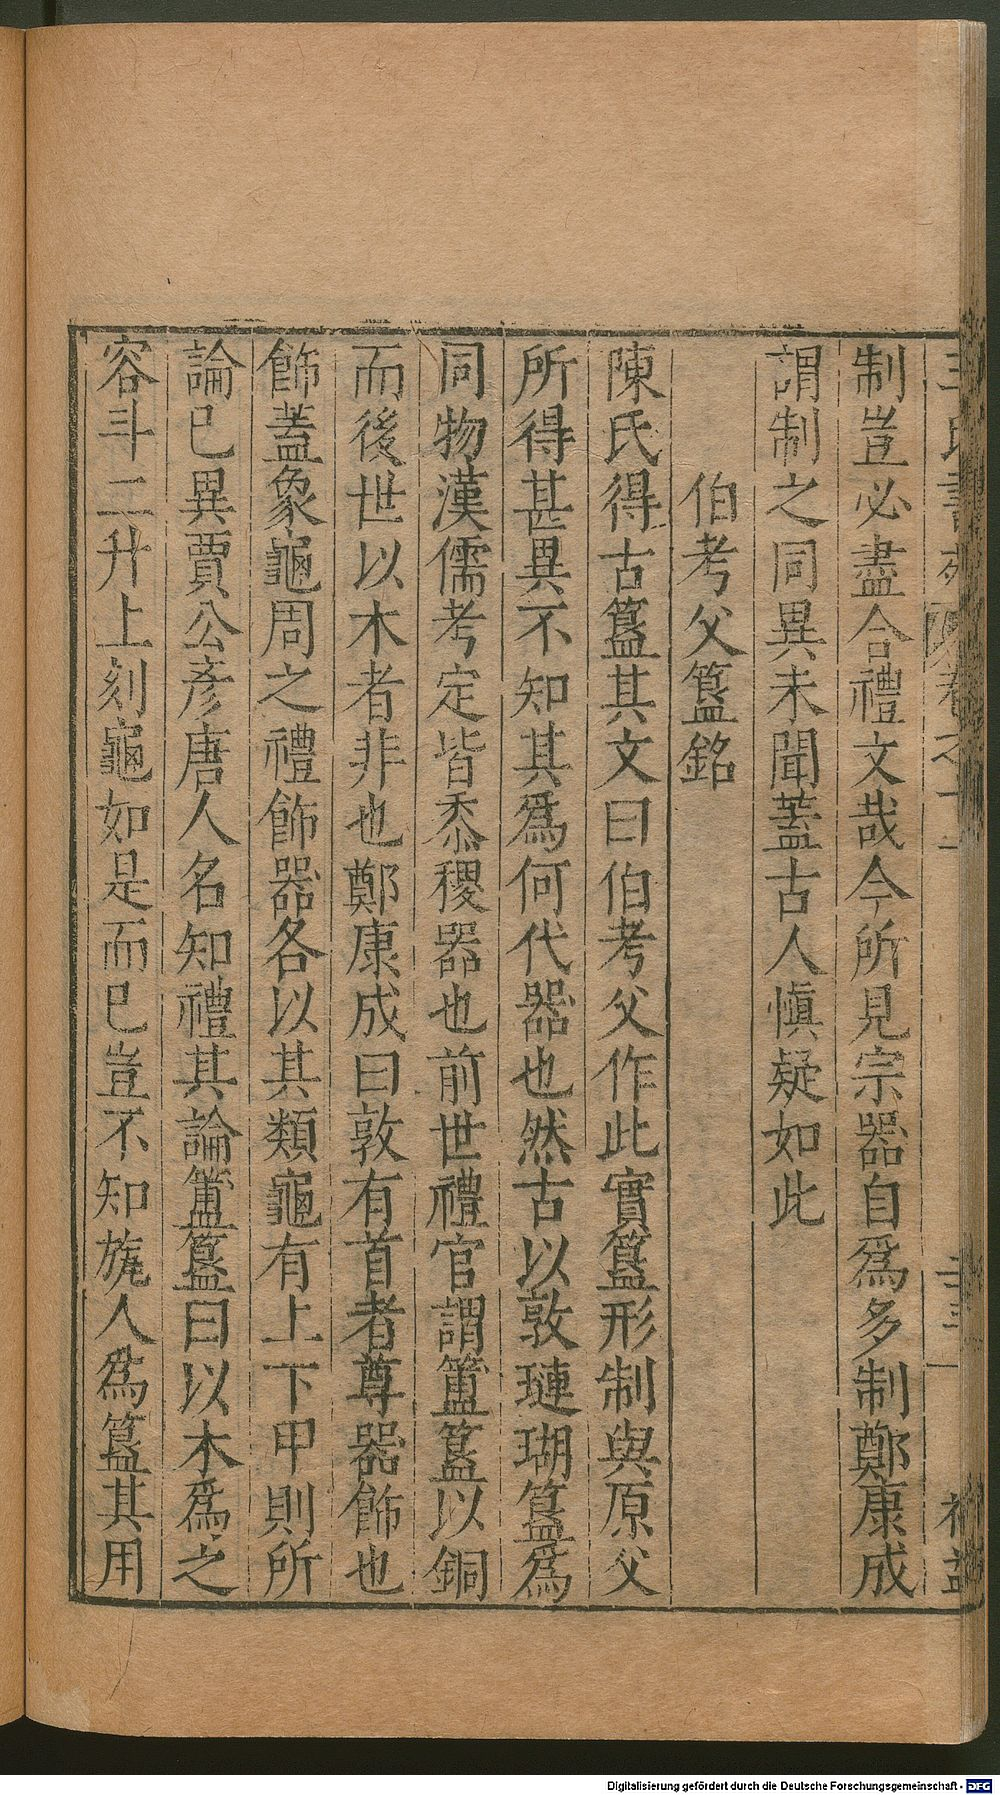 制豈必盡合禮文哉今所見宗器自爲多制鄭康成
謂制之同異未聞蓋古人慎疑如此
伯考父簋銘
陳氏得古簋其文曰伯考父作此實簋形制與原父
所得甚異不知其爲何代器也然古以敦璉瑚簋爲
同物漢儒考定皆黍稷器也前世禮官謂簠簋以銅
而後世以木者非也鄭康成曰敦有首者尊器飾也
飾蓋象龜周之禮飾器各以其類龜有上下甲則所
論已異賈公彥唐人名知禮其論簠簋曰以木爲之
容斗二升上刻龜如是而已豈不知旊人爲簋其用
Digitalisierung gefördert durch die Deutsche Forschungsgemeinschaft - DFG